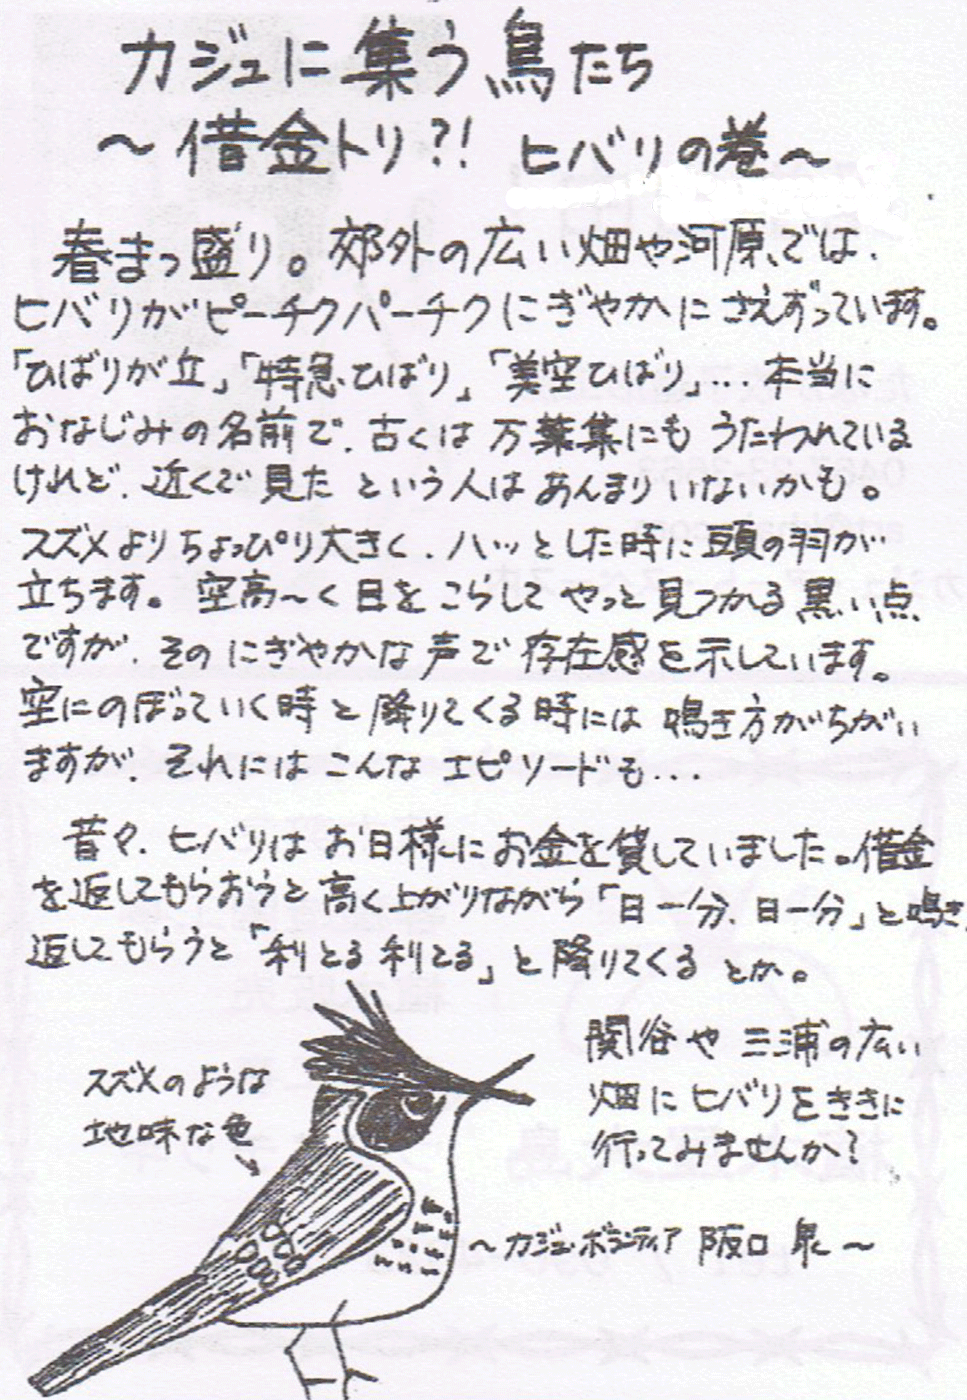 カジュに集う鳥たち
～借金トリ?! ヒバリの巻～
春まっ盛り。郊外の広い畑や河原では、
ヒバリがピーチクパーチクにぎやかにさえずっています。
「ひばりが丘」「特急ひばり」「美空ひばり」…本当に
おなじみの名前で、古くは万葉集にもうたわれている
けれど、近くで見たという人はあんまりいないかも。
スズメよりちょっぴり大きく、ハッとした時に頭の羽が
立ちます。空高～く目をこらしてやっと見つかる黒い点
ですが、そのにぎやかな声で存在感を示しています。
空にのぼっていく時と降りてくる時には鳴き方がちがい
ますが、それにはこんなエピソードも…
昔々、ヒバリはお日様にお金を貸していました。借金
を返してもらおうと高く上がりながら「日一分、日一分」と鳴き、
返してもらうと「利とる利とる」と降りてくるとか。
スズメのような
地味な色
関谷や三浦の広い
畑にヒバリをききに
行ってみませんか?
～カジュ・ボランティア 阪口 泉～